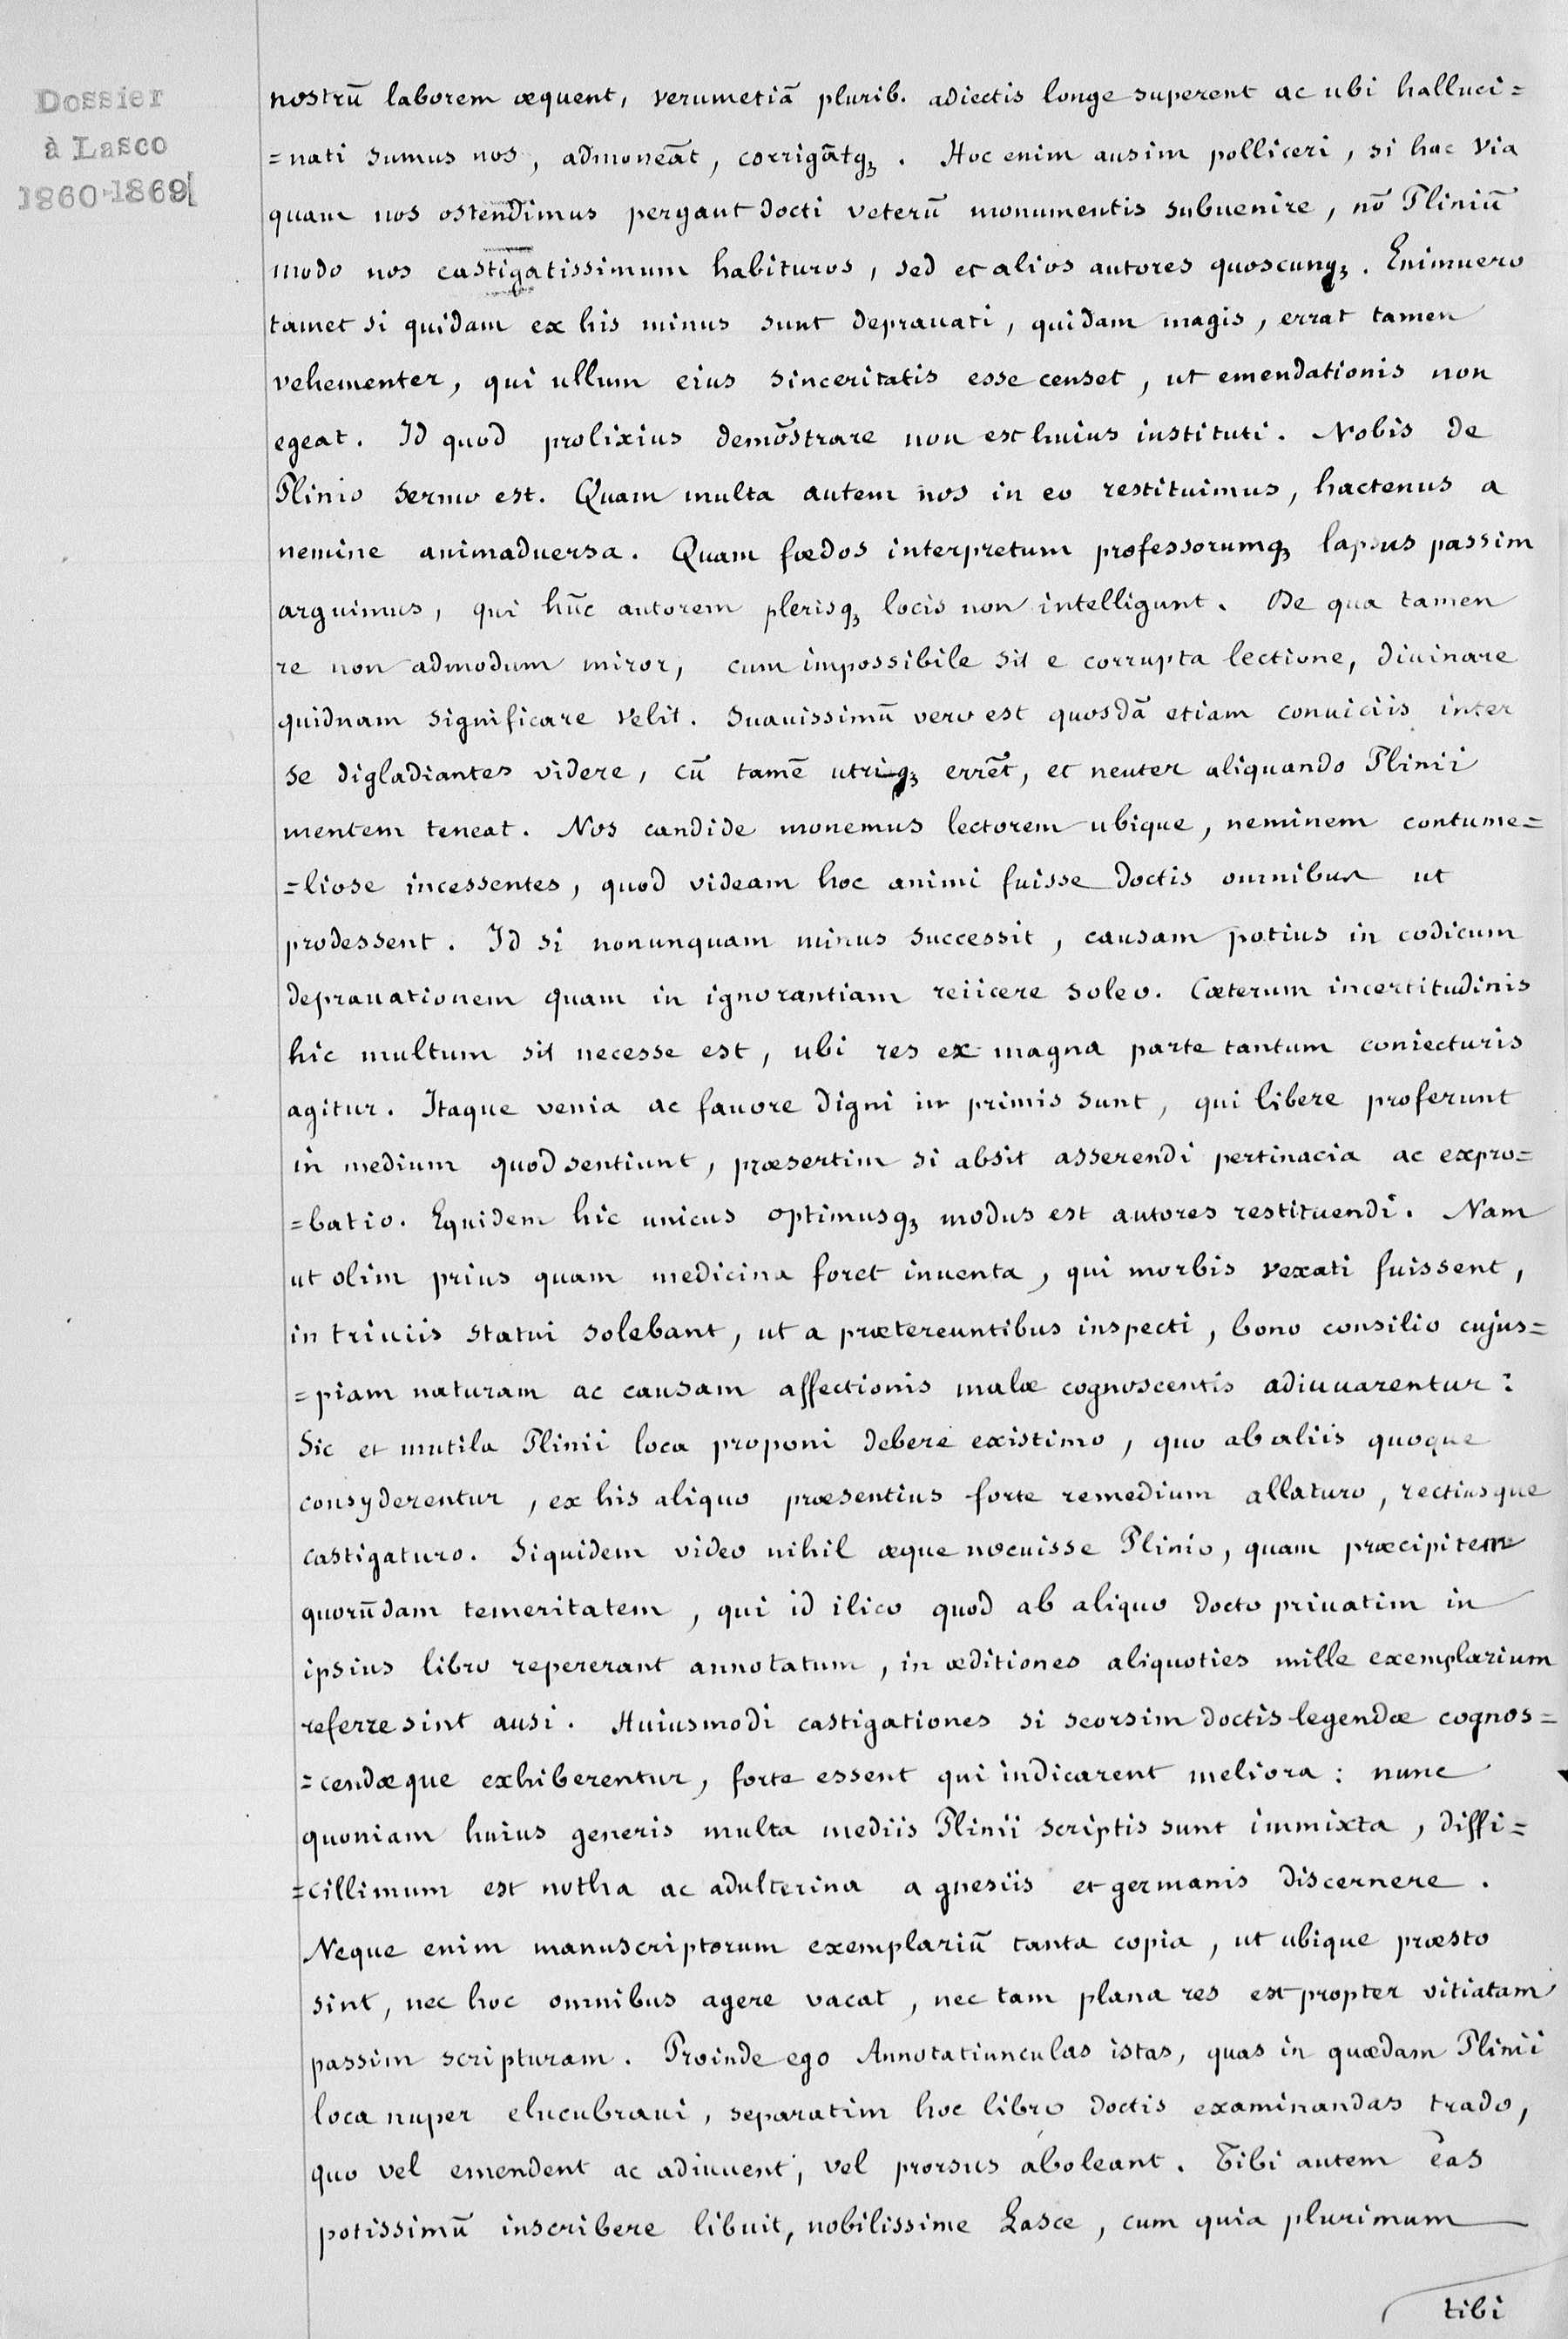 Dossier
à Lasco
1860-1869
nostrū laborem æquent, verumetiā plurib. adiectis longe superent ac ubi halluci=
=nati sumus nos, admoneāt, corrigātqꝫ. Hoc enim ausim polliceri, si hac via
quam nos ostendimus pergant docti veterū monumentis subuenire, nō Pliniū
modo nos castigatissimum habituros, sed et alios autores quoscunqꝫ. Enimuero
tamet si quidam ex his minus sunt deprauati, quidam magis, errat tamen
vehementer, qui ullum eius sinceritatis esse censet, ut emendationis non
egeat. Id quod prolixius demōstrare non est huius instituti. Nobis de
Plinio sermo est. Quam multa autem nos in eo restituimus, hactenus a
nemine animaduersa. Quam fœdos interpretum professorumqꝫ lapsus passim
arguimus, qui hūc autorem plerisqꝫ locis non intelligunt. De qua tamen
re non admodum miror, cum impossibile sit e corrupta lectione, diuinare
quidnam significare velit. Suauissimū vero est quosdā etiam conuiciis inter
se digladiantes videre, cū tamē utriqꝫ errēt, et neuter aliquando Plinii
mentem teneat. Nos candide monemus lectorem ubique, neminem contume=
=liose incessentes, quod videam hoc animi fuisse doctis omnibus ut
prodessent. Id si nonunquam minus successit, causam potius in codicum
deprauationem quam in ignorantiam reiicere soleo. Cæterum incertitudinis
hic multum sit necesse est, ubi res ex magna parte tantum coniecturis
agitur. Itaque venia ac fauore digni in primis sunt, qui libere proferunt
in medium quod sentiunt, præsertim si absit asserendi pertinacia ac expro=
=batio. Equidem hic unicus optimusqꝫ modus est autores restituendi. Nam
ut olim prius quam medicina foret inuenta, qui morbis vexati fuissent,
in triuiis statui solebant, ut a prætereuntibus inspecti, bono consilio cujus=
=piam naturam ac causam affectionis malæ cognoscentis adiuuarentur:
Sic et mutila Plinii loca proponi debere existimo, quo ab aliis quoque
consyderentur, ex his aliquo præsentius forte remedium allaturo, rectiusque
castigaturo. Siquidem video nihil æque nocuisse Plinio, quam præcipitem
quorūdam temeritatem, qui id ilico quod ab aliquo docto priuatim in
ipsius libro repererant annotatum, in æditiones aliquoties mille exemplarium
referre sint ausi. Huiusmodi castigationes si seorsim doctis legendæ cognos=
=cendæque exhiberentur, forte essent qui indicarent meliora: nunc
quoniam huius generis multa mediis Plinii scriptis sunt immixta, diffi=
=cillimum est notha ac adulterina a gnesiis et germanis discernere.
Neque enim manuscriptorum exemplariū tanta copia, ut ubique præsto
sint, nec hoc omnibus agere vacat, nec tam plana res est propter vitiatam
passim scripturam. Proinde ego Annotatiunculas istas, quas in quædam Plinii
loca nuper elucubraui, separatim hoc libro doctis examinandas trado,
quo vel emendent ac adiuuent, vel prorsus aboleant. Tibi autem eas
potissimū inscribere libuit, nobilissime Lasce, cum quia plurimum
tibi